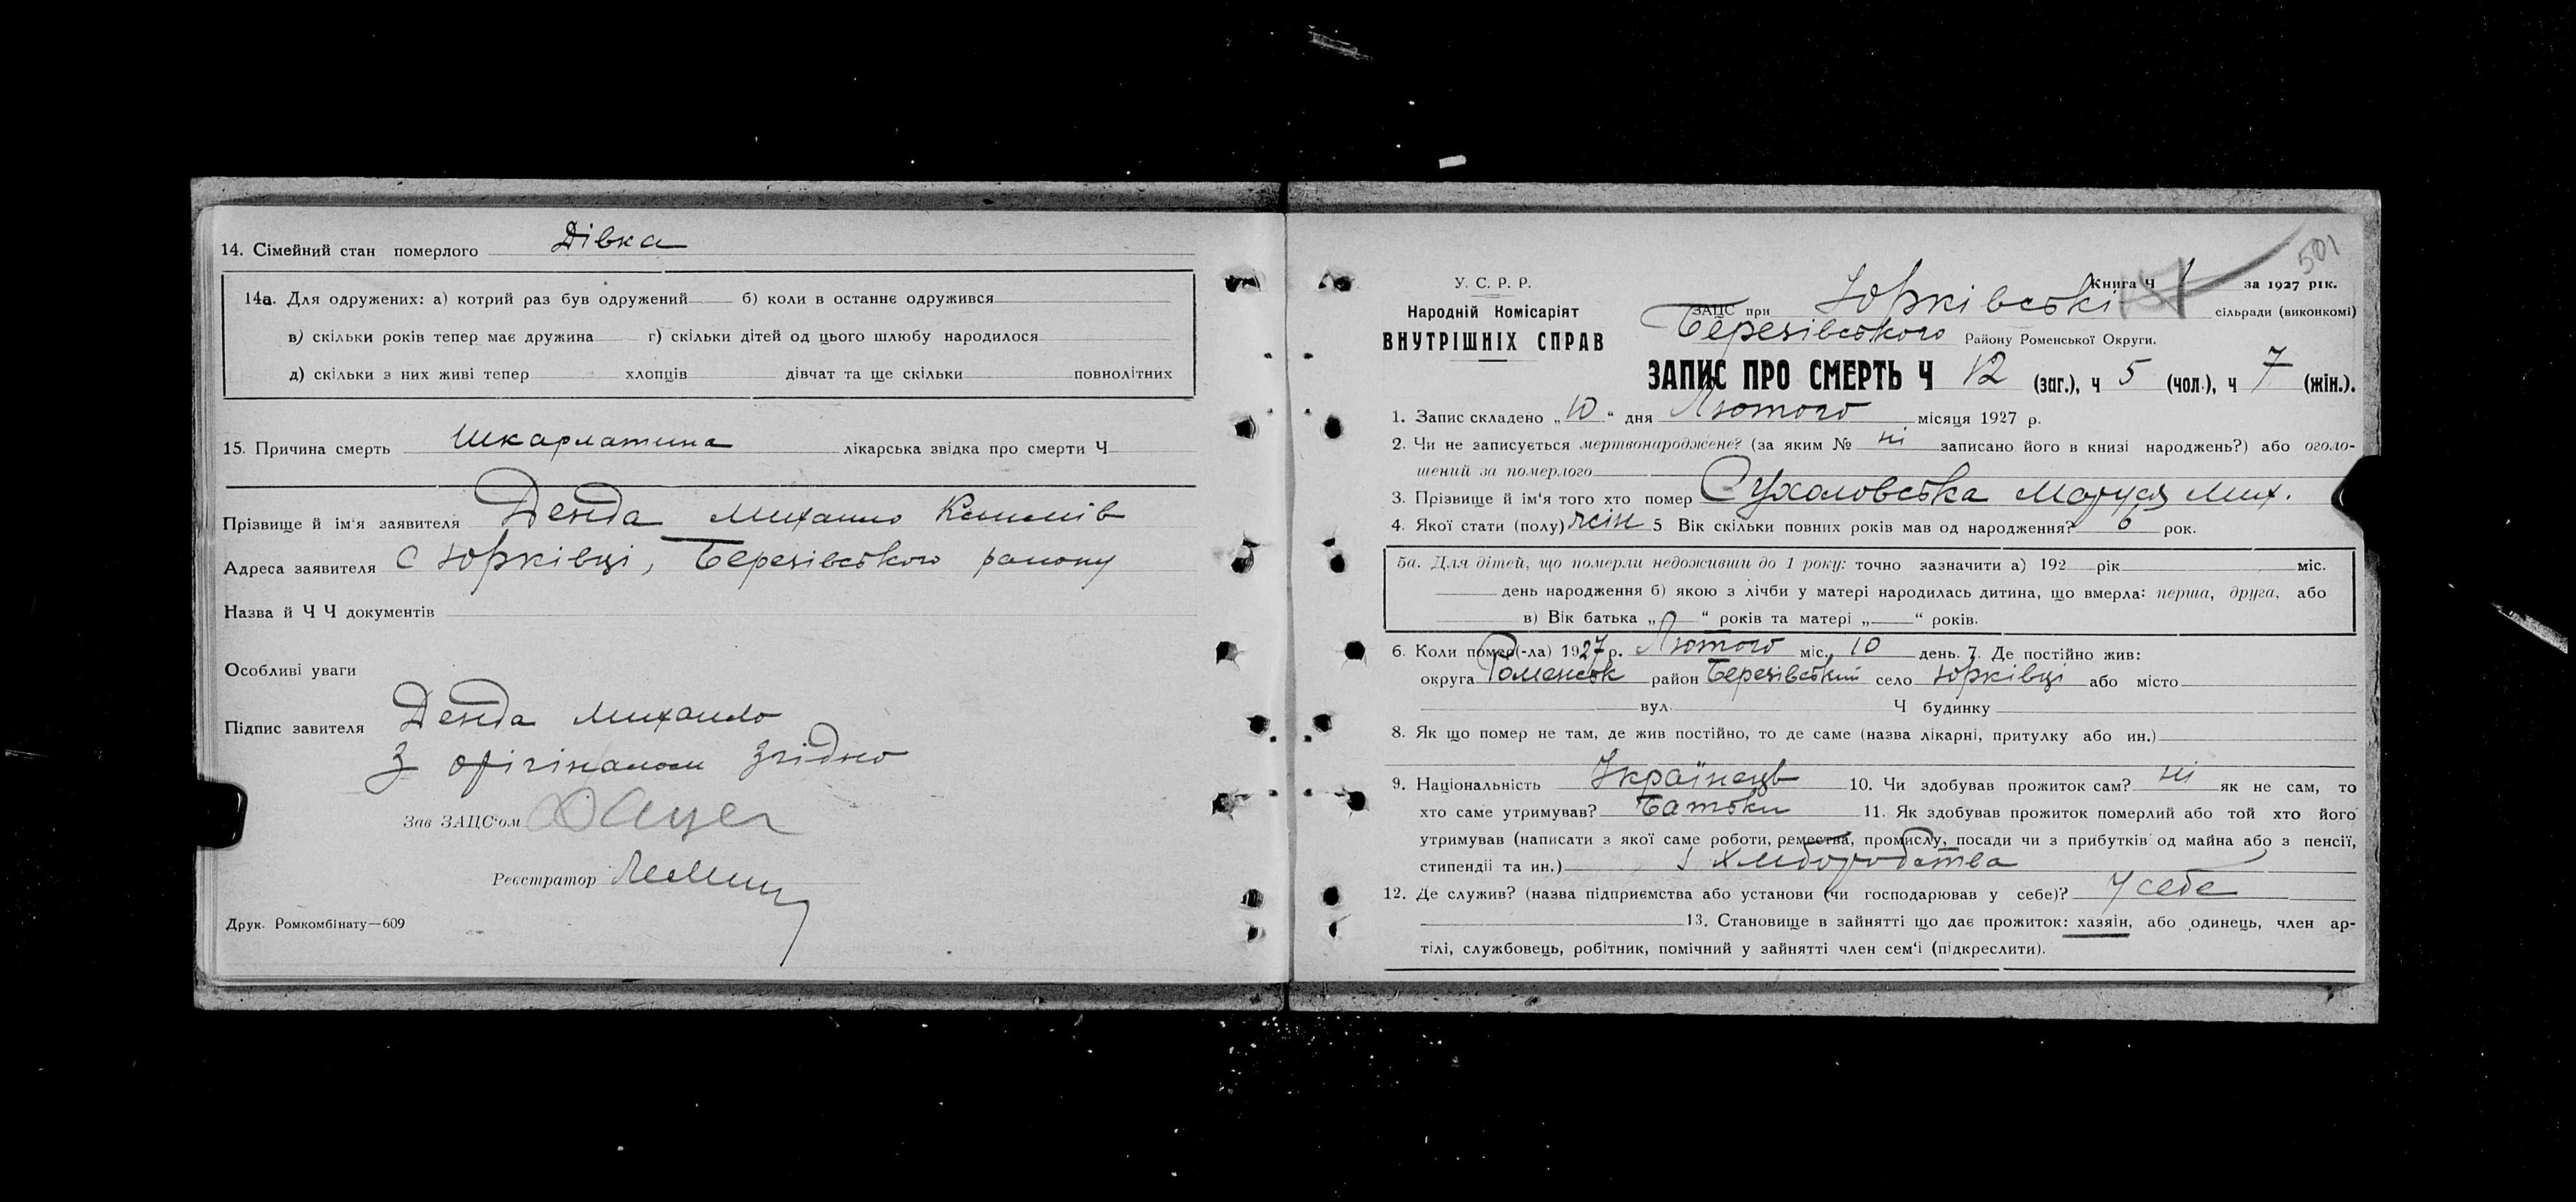 14. Сімейний стан померлого Дівка
14а. Для одружених: а) котрий раз був одружений б) коли в останнє одружився
в) скільки років тепер має дружина г) скільки дітей од цього шлюбу народилося
д) скільки з них живі тепер хлопців дівчат та ще скільки повнолітних
15. Причина смерть Шкарлатина лікарська звідка про смерти Ч
Прізвище й ім'я заявителя Денда Михайло
Адреса заявителя С Юрківці, Березівського району
Назва й Ч Ч документів
Особливі уваги
Підпис завителя Денда Михайло
З орігіналом згідно
Зав ЗАЦС'ом
Реєстратор
Друк. Ромкомбінату—609
501
У. С. Р. Р.
Народній Комісаріят
ВНУТРІШНІХ СПРАВ
Книга Ч 1 за 1927 рік.
ЗАЦС при Юрківські сільради (виконкомі)
Березівського Району Роменської Округи.
ЗАПИС ПРО СМЕРТЬ Ч 12 (заг.), ч 5 (чол.), ч 7 (жін.).
1. Запис складено „10“ дня Лютого місяця 1927 р.
2. Чи не записується мертвонароджене? (за яким № ні записано його в книзі народжень?) або оголо-
шений за померлого
3. Прізвище й ім'я того хто помер Сухоловська Маруся Мих.
4. Якої стати (полу) жін 5. Вік скільки повних років мав од народження? 6 рок.
5а. Для дітей, що померли недоживши до 1 року: точно зазначити а) 192 рік міс.
день народження б) якою з лічби у матері народилась дитина, що вмерла: перша, друга, або
в) Вік батька „ “ років та матері „ “ років.
6. Коли помер(-ла) 1927 р. Лютого міс. 10 день. 7. Де постійно жив:
округа Роменськ район Березівський село Юрківці або місто
вул. Ч будинку
8. Як що помер не там, де жив постійно, то де саме (назва лікарні, притулку або ин.)
9. Національність Українець 10. Чи здобував прожиток сам? ні як не сам, то
хто саме утримував? Батьки 11. Як здобував прожиток померлий або той хто його
утримував (написати з якої саме роботи, ремества, промислу, посади чи з прибутків од майна або з пенсії,
стипендії та ин.) з хліборобства
12. Де служив? (назва підприємства або установи (чи господарював у себе)? У себе
13. Становище в зайнятті що дає прожиток: хазяін, або одинець, член ар-
тілі, службовець, робітник, помічний у зайнятті член сем'і (підкреслити).